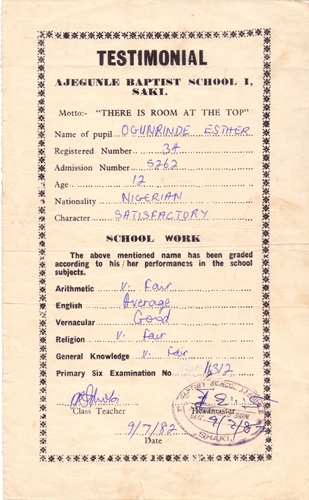 TESTIMONIAL
AJEGUNLE BAPTIST SCHOOL I,
SAKI.
Motto:- "THERE IS ROOM AT THE TOP"
Name of pupil OGUNRINDE ESTHER
Registered Number 3A
Admission Number 5262
Age 12
Nationality NIGERIAN
Character SATISFACTORY
SCHOOL WORK
The above mentioned name has been graded
according to his/her performances in the school
subjects.
Arithmetic V. Fair
English Average
Vernacular Good
Religion V. Fair
General Knowledge V. Fair
Primary Six Examination No
Class Teacher Headmaster
BAPTIST SCHOOL
9/7/82
SHAKI.
9/7/82
Date